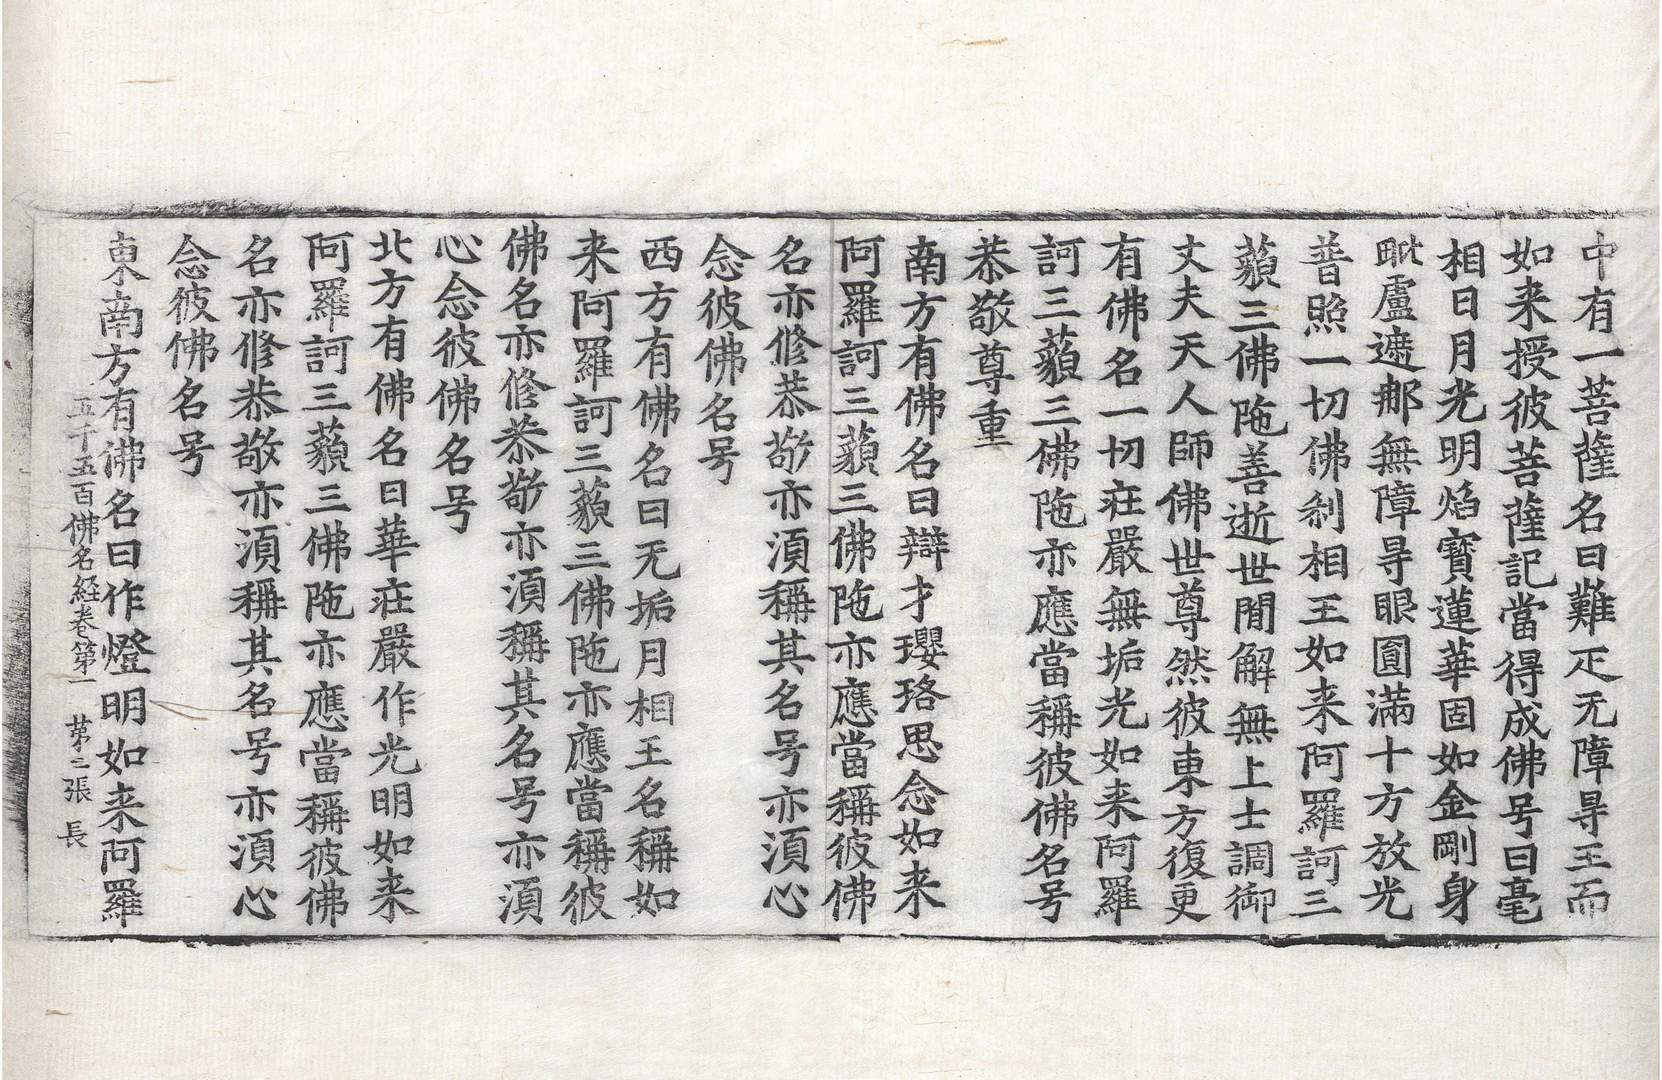 中有一菩薩名曰難疋无障㝵王而
如来授彼菩薩記當得成佛号曰毫
相日月光明焰寳蓮華固如金剛身
毗盧遮那無障㝵眼圓滿十方放光
普照一切佛刹相王如来阿羅訶三
藐三佛陁善逝世閒解無上士調御
丈夫天人師佛世尊然彼東方復更
有佛名一切莊嚴無垢光如来阿羅
訶三藐三佛陁亦應當稱彼佛名号
恭敬尊重
南方有佛名曰辯才瓔珞思念如来
阿羅訶三藐三佛陁亦應當稱彼佛
名亦修恭敬亦湏稱其名号亦湏心
念彼佛名号
西方有佛名曰无垢月相王名稱如
来阿羅訶三藐三佛陁亦應當稱彼
佛名亦修恭敬亦湏稱其名号亦湏
心念彼佛名号
北方有佛名曰華莊嚴作光明如来
阿羅訶三藐三佛陁亦應當稱彼佛
名亦修恭敬亦湏稱其名号亦湏心
念彼佛名号
東南方有佛名曰作燈明如来阿羅
五千五百佛名経卷第一 第三張 長